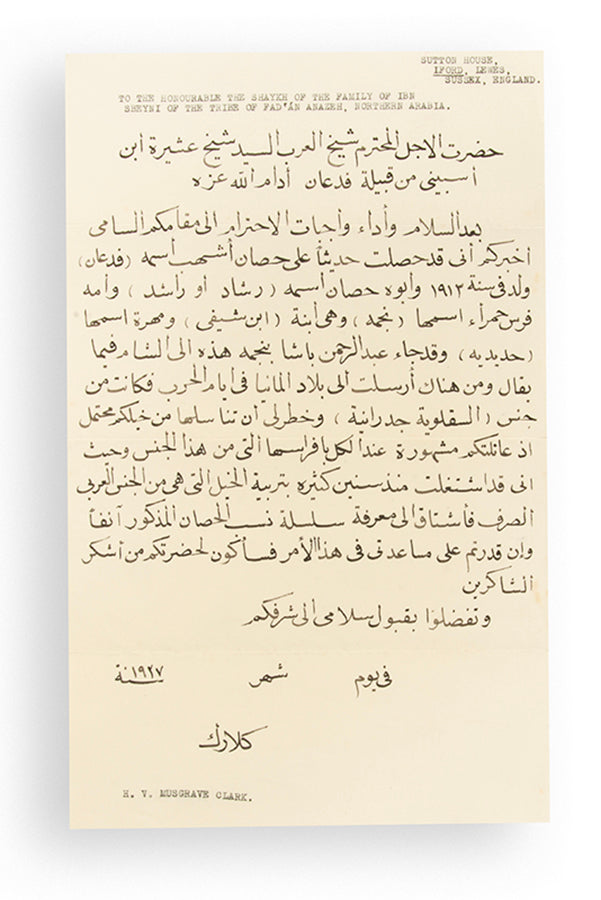 SUTTON HOUSE,
IFORD, LEWES,
SUSSEX, ENGLAND.
TO THE HONOURABLE THE SHAYKH OF THE FAMILY OF IBN
SBEYNI OF THE TRIBE OF FAD'ÁN ANAZEH, NORTHERN ARABIA.
حضرت الاجل المحترم شيخ العرب السيد شيخ عشيرة ابن
أسبيني من قبيلة فدعان أدام الله عزه
بعد السلام وأداء وأجبات الاحترام الى مقامكم السامى
أخبركم أنى قد حصلت حديثاً على حصان أشهب أسمه (فدعان)
ولد فى سنة ١٩١٢ وأبوه حصان أسمه (رشاد أو راشد) وأمه
فرس حمرأء اسمها (نجمه) وهى أبنة (ابن شيفى) ومهرة اسمها
(حديديه) وقد جاء عبد الرحمن باشا بنجمه هذه الى الشام فيما
يقال ومن هناك أرسلت الى بلاد المانيا فى ايام الحرب فكانت من
جنس (السقلوية جدرانية) وخطر لى أن تناسلها من خيلكم محتمل
اذ عائلتكم مشهورة عند الكل بافراسها التى من هذا الجنس وحيث
انى قد اشتغلت منذ سنين كثيره بتربية الخيل التى هى من الجنس العربى
الصرف فأشتاق الى معرفة سلسلة نسب الحصان المذكور آنفاً
وإن قدرتم على مساعدتى فى هذا الأمر فسأكون لحضرتكم من أشكر
الشاكرين
وتفضلوا بقبول سلامى الى شرفكم
فى يوم شهر سنة ١٩٢٧
كلارك
H. V. MUSGRAVE CLARK.